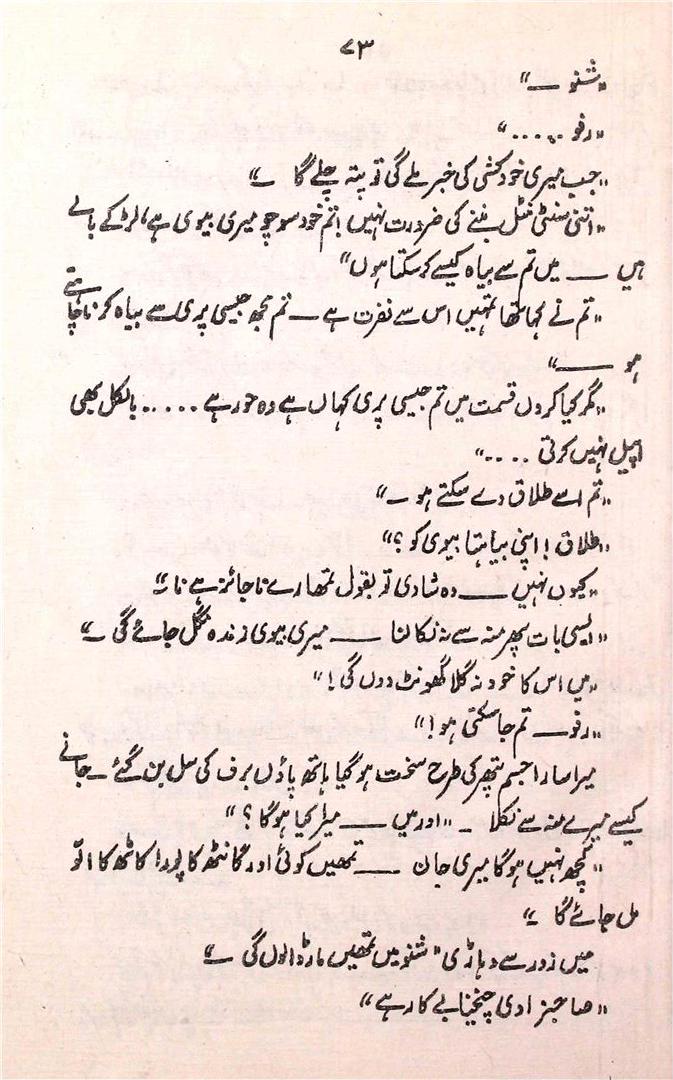 ۷۳
"شنو ـــ"
"رفو ....."
"جب میری خودکشی کی خبر ملے گی تو پتہ چلے گا ـــ"
"اتنی سنٹی منٹل بننے کی ضرورت نہیں! تم خود سوچو میری بیوی ہے، لڑکے بالے
ہیں ـــ میں تم سے بیاہ کیسے کر سکتا ہوں"
"تم نے کہا تھا تمہیں اس سے نفرت ہے ـــ تم مجھ جیسی پری سے بیاہ کرنا چاہتے
ہو ـــ"
"مگر کیا کروں قسمت میں تم جیسی پری کہاں ہے وہ حور ہے ..... بالکل بھی
اپیل نہیں کرتی ...."
"تم اسے طلاق دے سکتے ہو ـ"
"طلاق! اپنی بیاہتا بیوی کو؟"
"کیوں نہیں ـــ وہ شادی تو بقول تمھارے ناجائز ہے نا ـ"
"ایسی بات پھر منہ سے نہ نکالنا ـــ میری بیوی زندہ نگل جائے گی ـ"
"میں اس کا خود نہ گلا گھونٹ دوں گی!"
"رفو ـــ تم جا سکتی ہو!"
میرا سارا جسم پتھر کی طرح سخت ہو گیا ہاتھ پاؤں برف کی سل بن گئے ـ جانے
کیسے میرے منہ سے نکلا ـ "اور میں ـــ میرا کیا ہوگا؟"
"کچھ نہیں ہوگا میری جان ـــ تمھیں کوئی اور گانٹھ کا پورا کاٹھ کا الّو
مل جائے گا ـ"
میں زور سے دہاڑی "شنو میں تمھیں مار ڈالوں گی ـ"
"صاحبزادی چیخنا بے کار ہے"